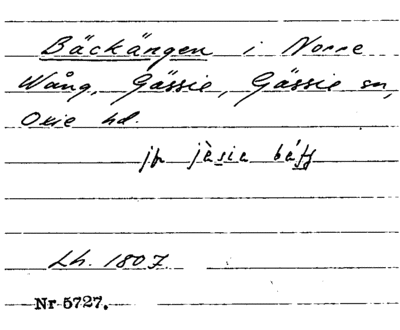 Bäckängen i Norre
Wång, Gässie, Gässie sn,
Oxie hd.
jfr jàsia
Lh. 1807
Nr 5727.